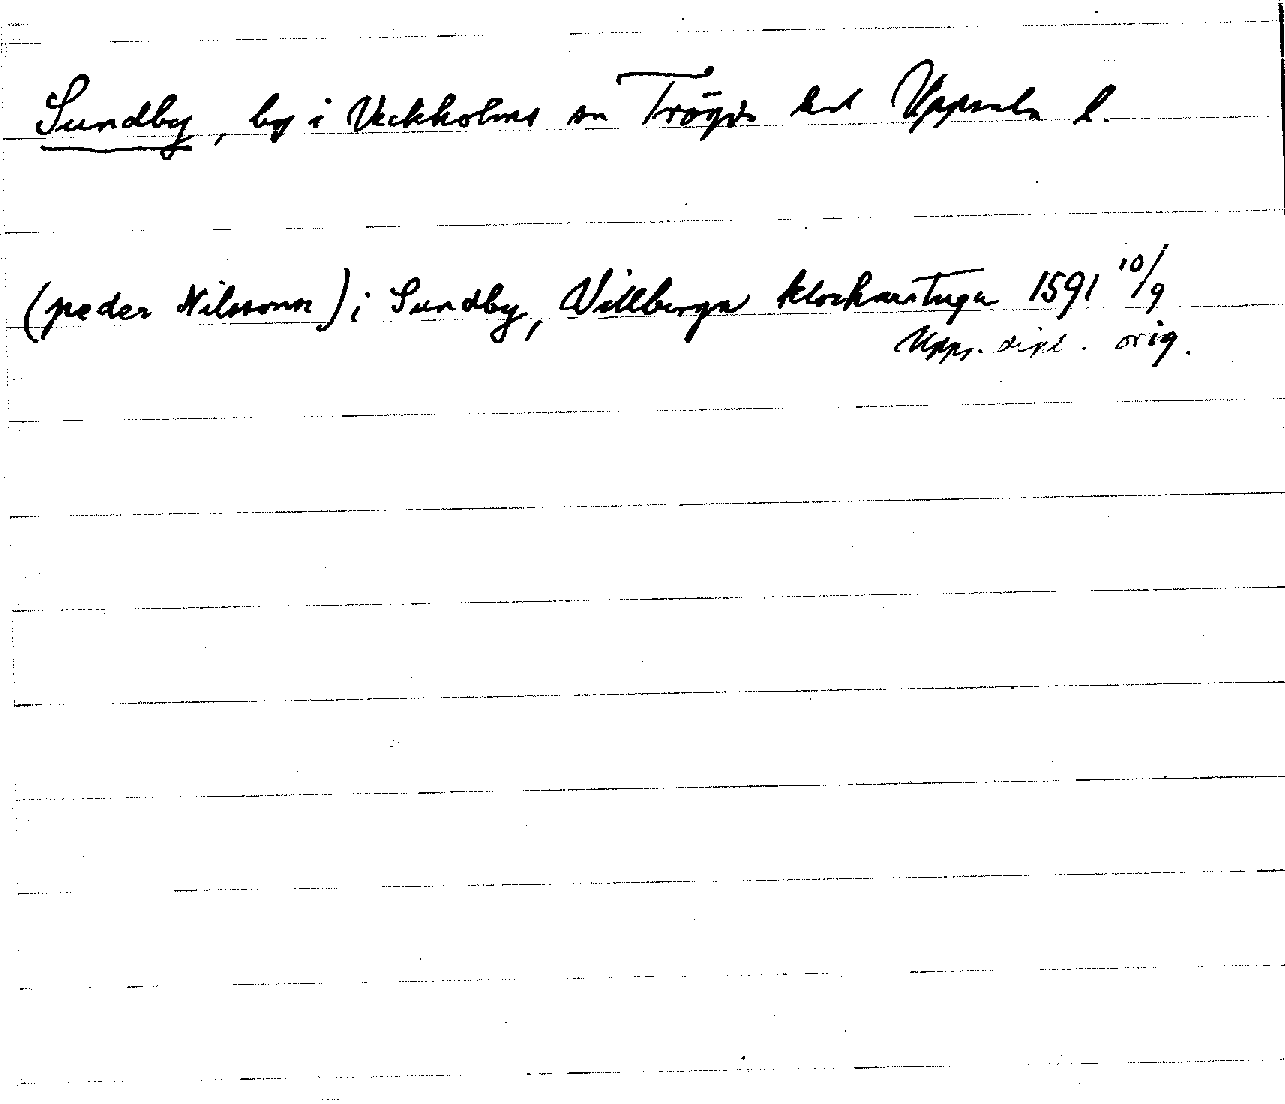 Sundby, by i Veckholms sn Trögds hd Uppsala l.
(peder Nilssonn) i Sundby, Villberga klockarstuga 1591 10/9
Upps. dipl. orig.